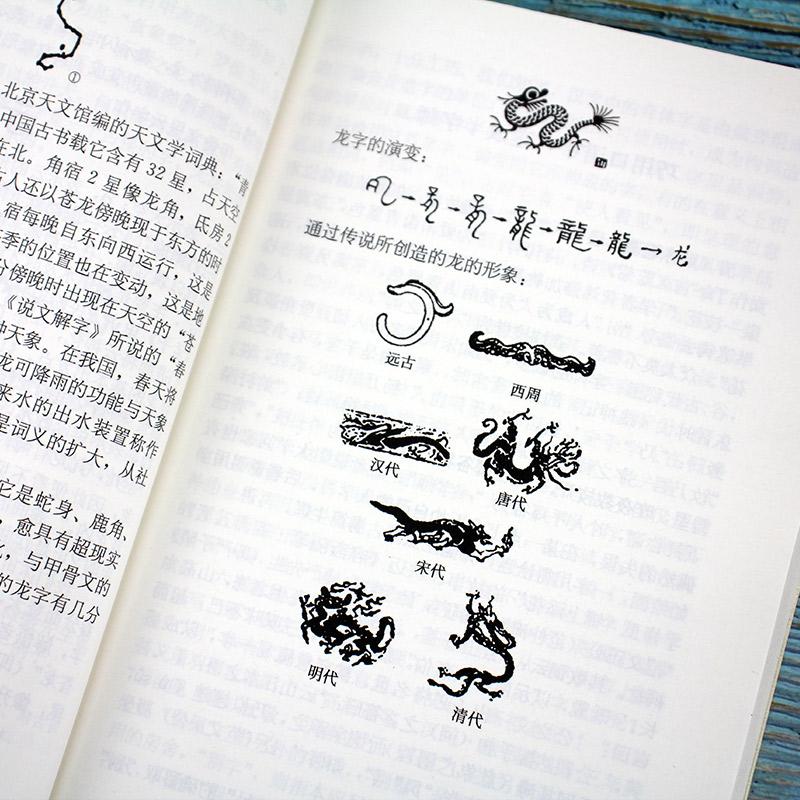 ①
北京天文馆编的天文学词典：“青
中国古书载它含有 32 星，占天空
在北。角宿 2 星像龙角，氐房 2
人还以苍龙傍晚现于东方的时
宿每晚自东向西运行，这是
季的位置也在变动，这是地
分傍晚时出现在天空的“苍
《说文解字》所说的“春
种天象。在我国，春天将
龙可降雨的功能与天象
来水的出水装置称作
是词义的扩大，从社
它是蛇身、鹿角、
，愈具有超现实
，与甲骨文的
的龙字有几分
龙字的演变：
龍→龍→龍→龙
通过传说所创造的龙的形象：
远古
西周
汉代
唐代
宋代
明代
清代